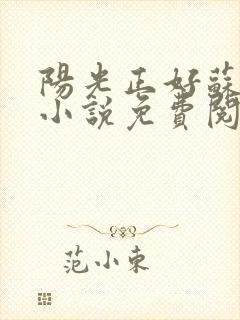 陽光正好蘇
小說免費閱
范小東